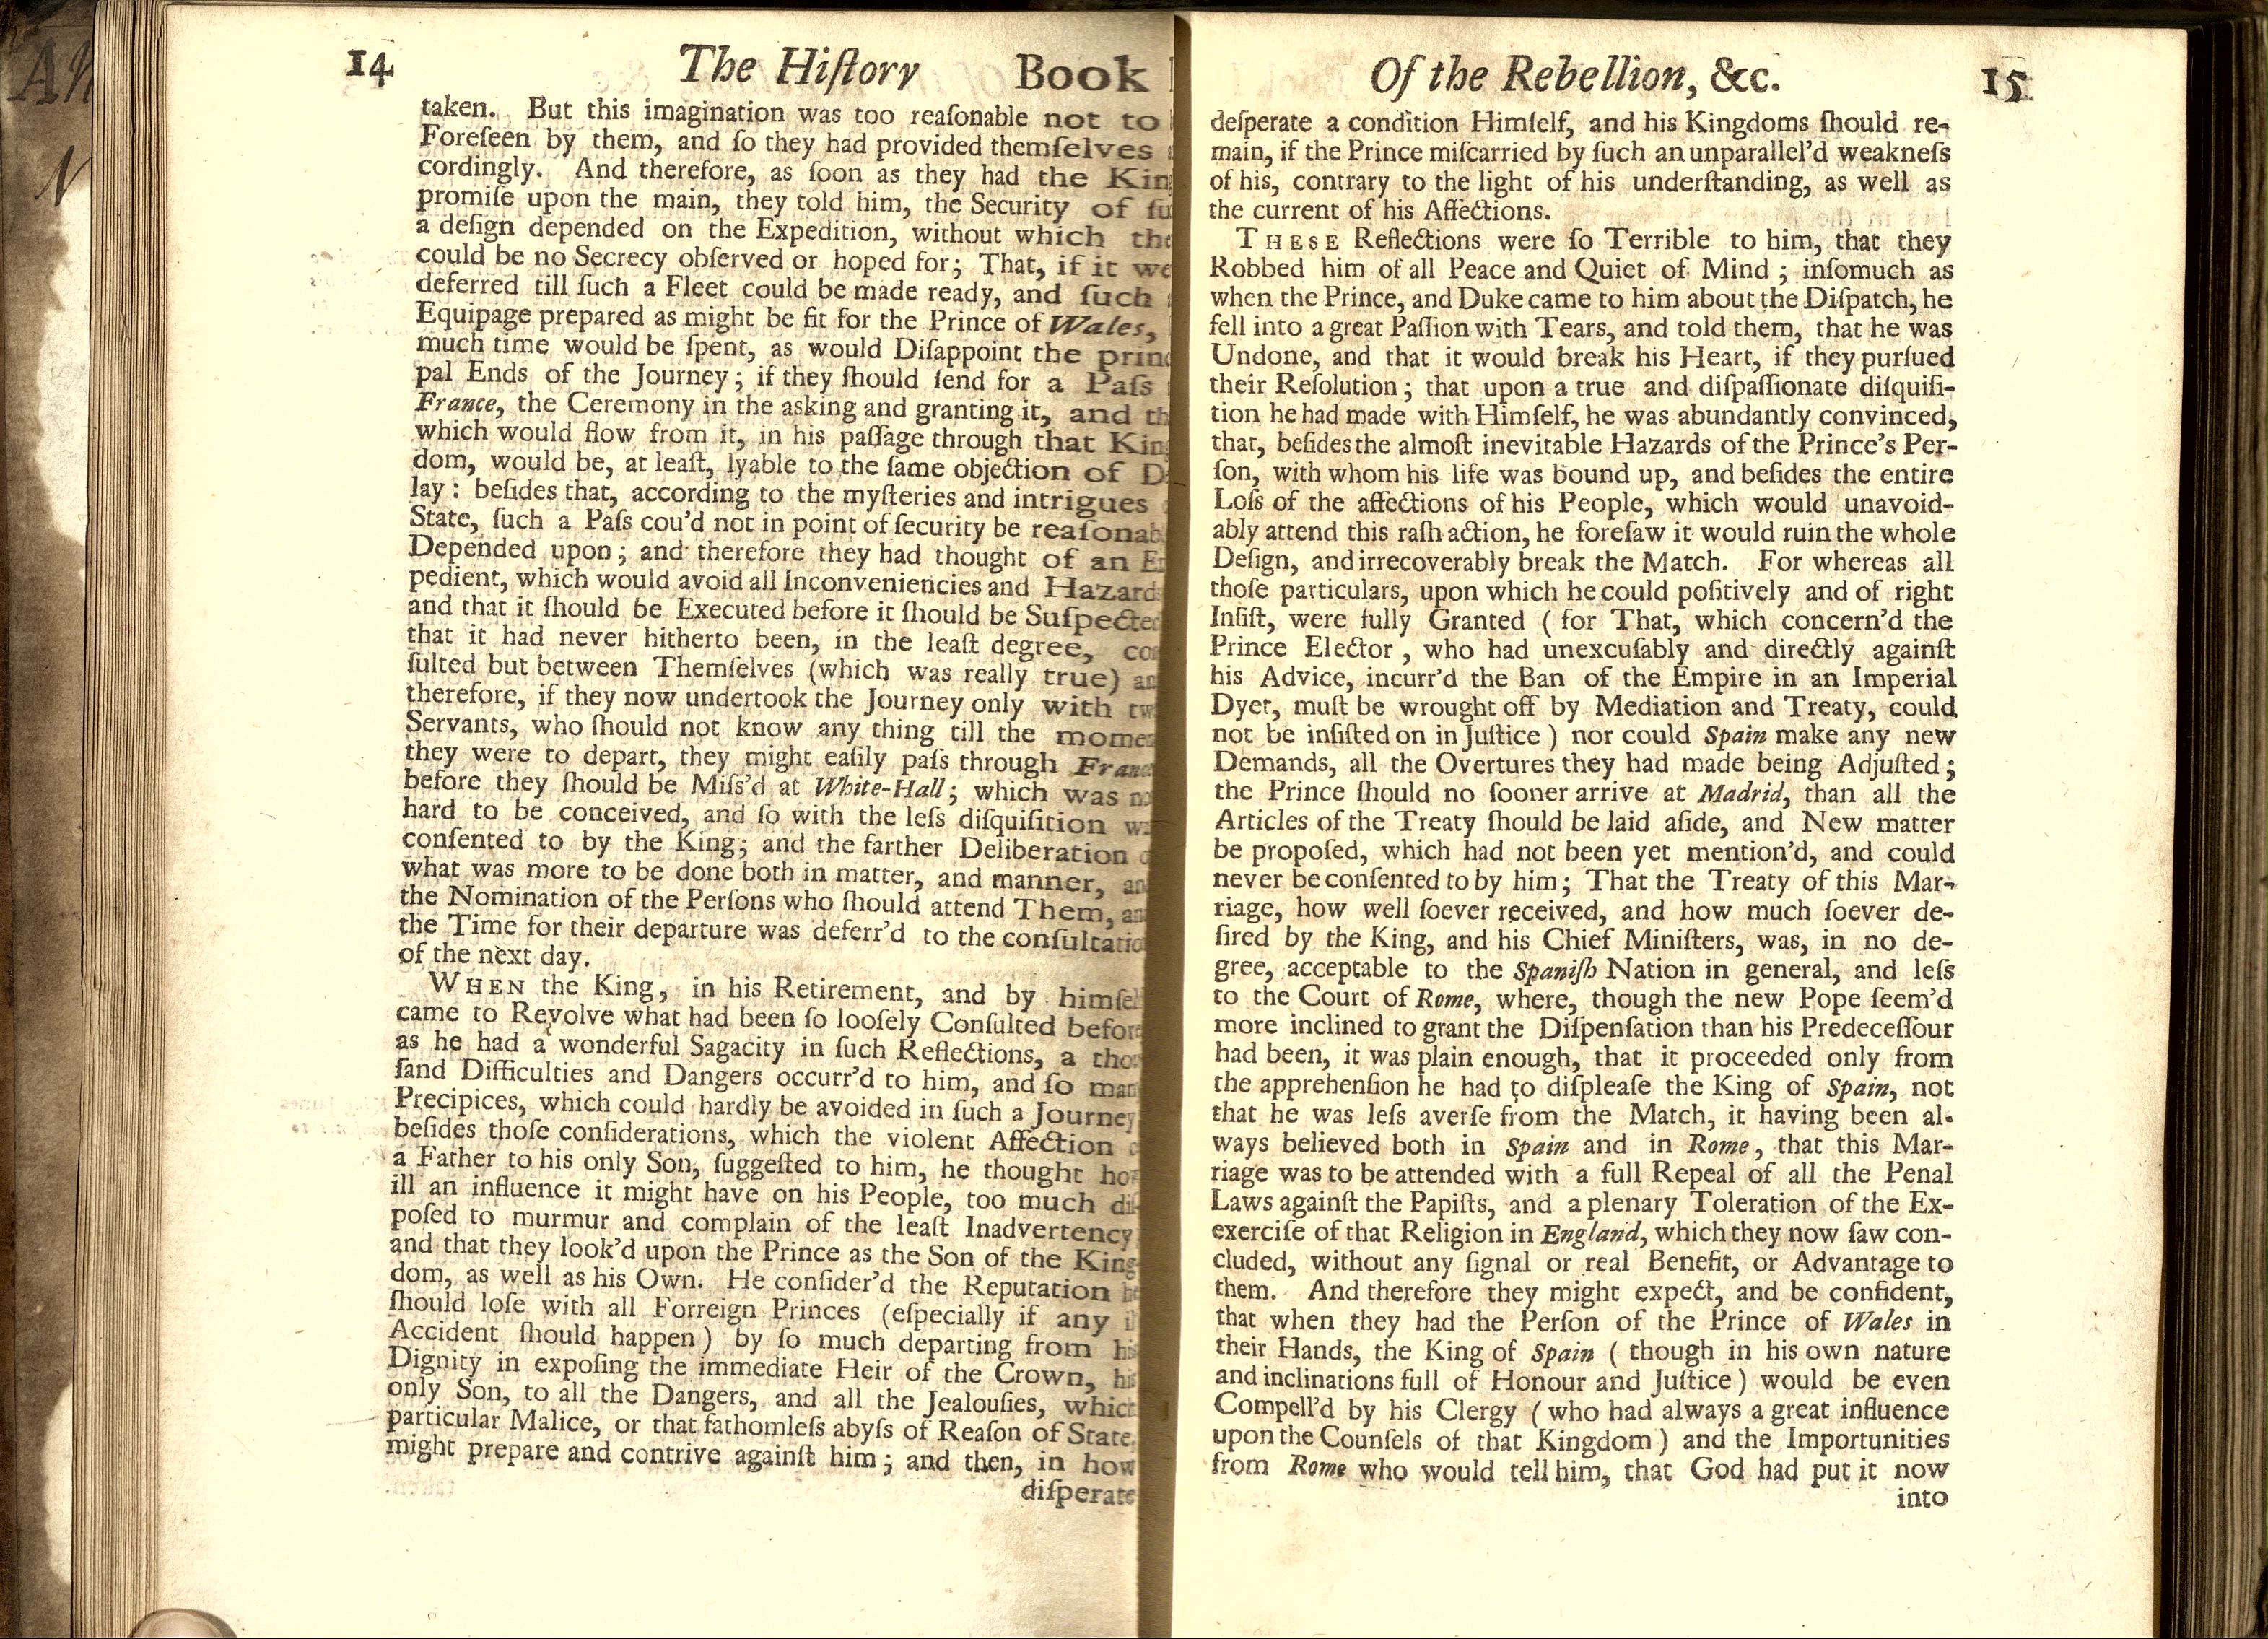 14 The Hiſtory Book
taken. But this imagination was too reaſonable not to
Foreſeen by them, and ſo they had provided themſelves
cordingly. And therefore, as ſoon as they had the Kin
promiſe upon the main, they told him, the Security of ſu
a deſign depended on the Expedition, without which the
could be no Secrecy obſerved or hoped for; That, if it we
deferred till ſuch a Fleet could be made ready, and ſuch
Equipage prepared as might be fit for the Prince of Wales,
much time would be ſpent, as would Diſappoint the princ
pal Ends of the Journey; if they ſhould ſend for a Paſs
France, the Ceremony in the asking and granting it, and th
which would flow from it, in his paſſage through that Kin
dom, would be, at leaſt, lyable to the ſame objection of D
lay: beſides that, according to the myſteries and intrigues
State, ſuch a Paſs cou'd not in point of ſecurity be reaſonab
Depended upon; and therefore they had thought of an E
pedient, which would avoid all Inconveniencies and Hazard
and that it ſhould be Executed before it ſhould be Suſpected
that it had never hitherto been, in the leaſt degree, co
ſulted but between Themſelves (which was really true) an
therefore, if they now undertook the Journey only with tw
Servants, who ſhould not know any thing till the mome
they were to depart, they might eaſily paſs through Franc
before they ſhould be Miſs'd at White-Hall; which was no
hard to be conceived, and ſo with the leſs diſquiſition w
conſented to by the King; and the farther Deliberation
what was more to be done both in matter, and manner, an
the Nomination of the Perſons who ſhould attend Them, an
the Time for their departure was deferr'd to the conſultatio
of the next day.
WHEN the King, in his Retirement, and by himſel
came to Revolve what had been ſo looſely Conſulted before
as he had a wonderful Sagacity in ſuch Reflections, a tho
ſand Difficulties and Dangers occurr'd to him, and ſo man
Precipices, which could hardly be avoided in ſuch a Journey
beſides thoſe conſiderations, which the violent Affection
a Father to his only Son, ſuggeſted to him, he thought ho
ill an influence it might have on his People, too much diſ-
poſed to murmur and complain of the leaſt Inadvertency
and that they look'd upon the Prince as the Son of the King-
dom, as well as his Own. He conſider'd the Reputation he
ſhould loſe with all Forreign Princes (eſpecially if any
Accident ſhould happen) by ſo much departing from his
Dignity in expoſing the immediate Heir of the Crown, his
only Son, to all the Dangers, and all the Jealouſies, which
particular Malice, or that fathomleſs abyſs of Reaſon of State,
might prepare and contrive againſt him; and then, in how
diſperate
Of the Rebellion, &c. 15
deſperate a condition Himſelf, and his Kingdoms ſhould re-
main, if the Prince miſcarried by ſuch an unparallel'd weakneſs
of his, contrary to the light of his underſtanding, as well as
the current of his Affections.
THESE Reflections were ſo Terrible to him, that they
Robbed him of all Peace and Quiet of Mind; inſomuch as
when the Prince, and Duke came to him about the Diſpatch, he
fell into a great Paſſion with Tears, and told them, that he was
Undone, and that it would break his Heart, if they purſued
their Reſolution; that upon a true and diſpaſſionate diſquiſi-
tion he had made with Himſelf, he was abundantly convinced,
that, beſides the almoſt inevitable Hazards of the Prince's Per-
ſon, with whom his life was bound up, and beſides the entire
Loſs of the affections of his People, which would unavoid-
ably attend this raſh action, he foreſaw it would ruin the whole
Deſign, and irrecoverably break the Match. For whereas all
thoſe particulars, upon which he could poſitively and of right
Inſiſt, were fully Granted (for That, which concern'd the
Prince Elector, who had unexcuſably and directly againſt
his Advice, incurr'd the Ban of the Empire in an Imperial
Dyet, muſt be wrought off by Mediation and Treaty, could
not be inſiſted on in Juſtice) nor could Spain make any new
Demands, all the Overtures they had made being Adjuſted;
the Prince ſhould no ſooner arrive at Madrid, than all the
Articles of the Treaty ſhould be laid aſide, and New matter
be propoſed, which had not been yet mention'd, and could
never be conſented to by him; That the Treaty of this Mar-
riage, how well ſoever received, and how much ſoever de-
ſired by the King, and his Chief Miniſters, was, in no de-
gree, acceptable to the Spaniſh Nation in general, and leſs
to the Court of Rome, where, though the new Pope ſeem'd
more inclined to grant the Diſpenſation than his Predeceſſour
had been, it was plain enough, that it proceeded only from
the apprehenſion he had to diſpleaſe the King of Spain, not
that he was leſs averſe from the Match, it having been al-
ways believed both in Spain and in Rome, that this Mar-
riage was to be attended with a full Repeal of all the Penal
Laws againſt the Papiſts, and a plenary Toleration of the Ex-
exerciſe of that Religion in England, which they now ſaw con-
cluded, without any ſignal or real Benefit, or Advantage to
them. And therefore they might expect, and be confident,
that when they had the Perſon of the Prince of Wales in
their Hands, the King of Spain (though in his own nature
and inclinations full of Honour and Juſtice) would be even
Compell'd by his Clergy (who had always a great influence
upon the Counſels of that Kingdom) and the Importunities
from Rome who would tell him, that God had put it now
into